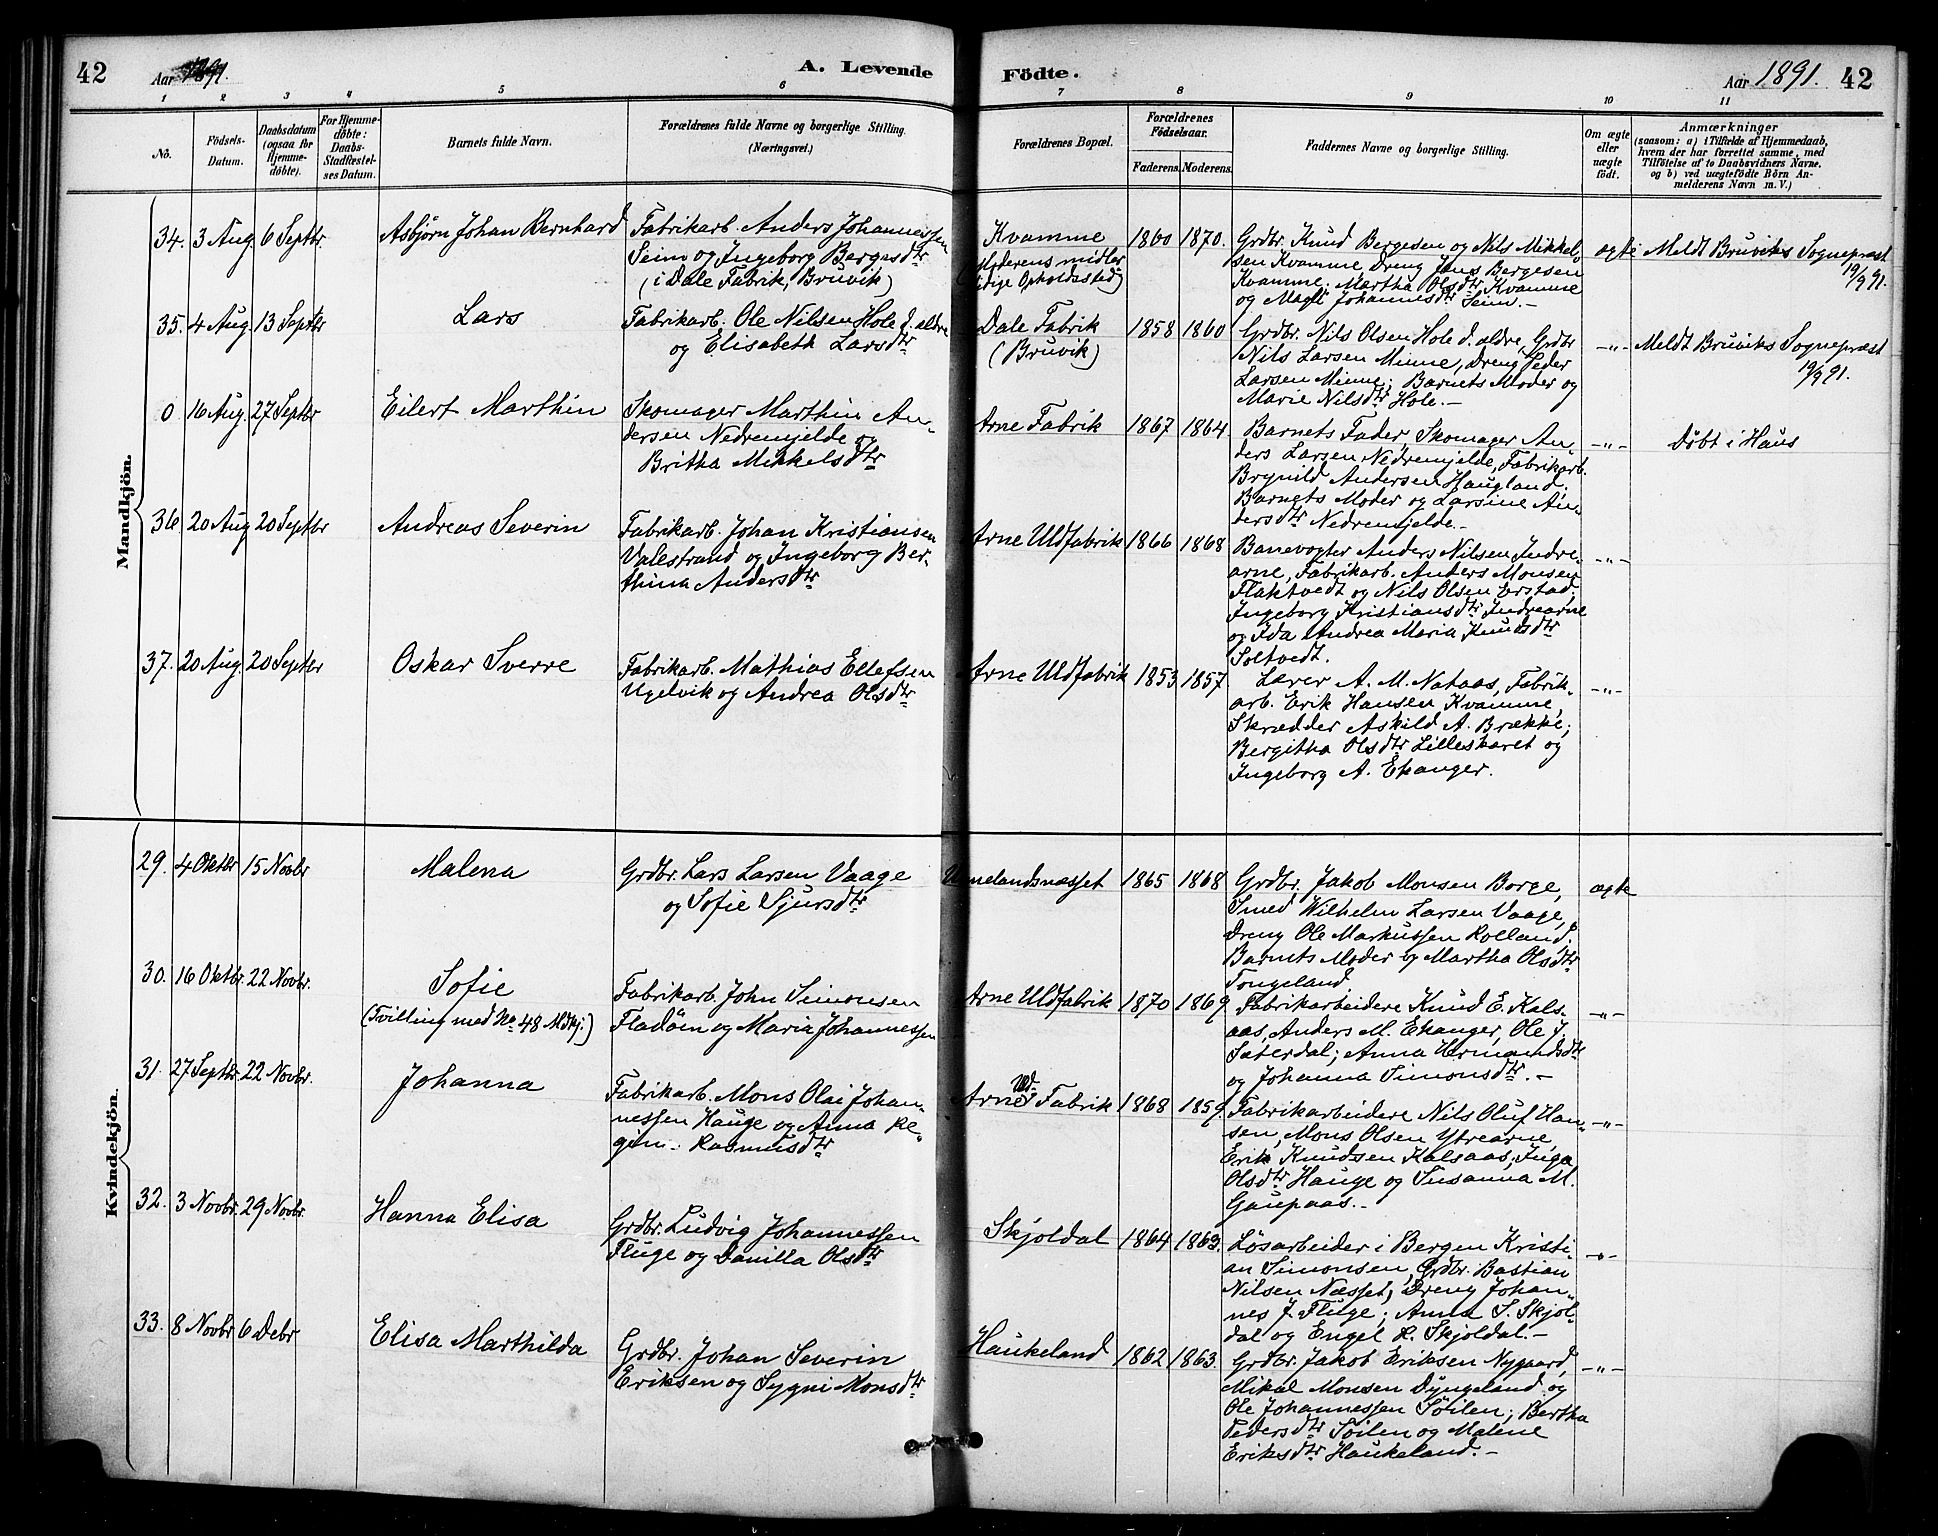 42
Aar 1891.
A. Levende
Födte.
Aar 1891.
42
1 2 3 4 5 6 7 8 9 10 11
No.
Födsels-
Datum.
Daabsdatum
(ogsaa for
Hjemme-
døbte).
For Hjemme-
døbte:
Daabs-
Stadfæstel-
ses Datum.
Barnets fulde Navn.
Forældrenes fulde Navne og borgerlige Stilling.
(Næringsvei.)
Forældrenes Bopæl.
Forældrenes
Födselsaar.
Faderens. Moderens.
Faddernes Navne og borgerlige Stilling.
Om ægte
eller
uægte
født.
Anmærkninger
(saasom: a) i Tilfælde af Hjemmedaab,
hvem der har forrettet samme, med
Tilföielse af to Daabsvidners Navne,
og b) ved uægtefödte Börn An-
melderens Navn m. V.)
Mandkjön.
34. 3 Aug 6 Septbr.
Asbjørn Johan Bernhard
Fabrikarb. Anders Johannessen
Seim og Ingeborg Bergesdtr
(i Dale Fabrik, Bruvik)
Kvamme
(Moderens midler-
tidige Opholdssted)
1860 1870.
Grdbr. Knud Bergesen og Nils Mikkel-
sen Kvamme, Dreng Jens Bergesen
Kvamme; Martha Olsdtr Kvamme
og Magli Johannesdtr Seim.-
ægte
Meldt Bruviks Sognepræst
19/9 91.
35. 4 Aug 13 Septbr
Lars
Fabrikarb. Ole Nilsen Hole d. ældre
og Elisabeth Larsdtr
Dale Fabrik
(Bruvik)
1858 1860
Grdbr. Nils Olsen Hole d. ældre, Grdbr
Nils Larsen Minne, Dreng Peder
Larsen Minne; Barnets Moder og
Marie Nilsdtr Hole.-
-"-
Meldt Bruviks Sognepræst
19/9 91.
0 16 Aug. 27 Septbr
Eilert Marthin
Skomager Marthin An-
dersen Nedremjelde og
Britha Mikkelsdtr
Arne Fabrik
1867 1864
Barnets Fader, Skomager An-
ders Larsen Nedremjelde, Fabrikarb.
Brynild Andersen Haugland;
Barnets Moder og Larsine An-
dersdtr Nedremjelde.-
-"-
Døbt i Haus
36 20 Aug 20 Septbr
Andreas Severin
Fabrikarb. Johan Kristiansen
Valestrand og Ingeborg Ber-
thina Andersdtr
Arne Uldfabrik
1866 1868
Banevogter Anders Nilsen Indre-
arne, Fabrikarb. Anders Monsen
Flaktvedt og Nils Olsen Erstad;
Ingeborg Kristiansdtr Indrearne
og Ida Andrea Maria Knudsdtr
Soltvedt.
-"-
37. 20 Aug. 20 Septbr
Oskar Sverre
Fabrikarb. Mathias Ellefsen
Ugelvik og Andrea Olsdtr
Arne Uldfabrik
1853 1857
Lærer A. M. Nataas, Fabrik-
arb. Erik Hansen Kvamme,
Skrædder Askild A. Brække;
Bergitha Olsdtr Lilleskaret og
Ingeborg A. Ekanger.
-"-
Kvindekjön.
29. 4 Oktbr 15 Novbr
Malena
Grdbr. Lars Larsen Vaage
og Sofie Sjursdtr
1865 1868
Grdbr. Jakob Monsen Borge,
Smed Wilhelm Larsen Vaage,
Dreng Ole Markussen Rolland;
Barnets Moder og Martha Olsdtr
Tongeland.
ægte
30. 16 Oktbr. 22 Novbr.
Sofie
(Tvilling med No 48 Mdkj:)
Fabrikarb. John Simonsen
Fladöen og Maria Johannessen
Arne Uldfabrik
1870 1869
Fabrikarbeidere Knud E. Kals-
aas, Anders M. Ekanger, Ole J.
Sæterdal; Anna Hermandsdtr
og Johanna Simonsdtr.-
-"-
31. 27 Septbr. 22 Novbr.
Johanna
Fabrikarb. Mons Olai Johan-
nessen Hauge og Anna Re-
gine Rasmusdtr
Arne Uld-Fabrik
1868 1859.
Fabrikarbeidere Nils Oluf Han-
sen, Mons Olsen Ytrearne,
Erik Knudsen Kalsaas; Inga
Olsdtr Hauge og Susanna M.
Gaupaas.-
-"-
32. 3 Novbr. 29 Novbr.
Hanna Elisa
Grdbr. Ludvig Johannessen
Fluge og Danilla Olsdtr
Skjoldal
1864 1863.
Løsarbeider i Bergen Kristi-
an Simonsen, Grdbr. Bastian
Nilsen Næsset, Dreng Johan-
nes J. Fluge; Anna S. Skjol-
dal og Engel R. Skjoldal.-
-"-
33. 8 Novbr 6 Debr
Elisa Marthilda
Grdbr. Johan Severin
Eriksen og Sygni Monsdtr
Haukeland
1862 1863.
Grdbr. Jakob Eriksen Nygaard,
Mikal Monsen Dyngeland og
Ole Johannessen Söilen; Bertha
Pedersdtr Söilen og Malene
Eriksdtr Haukeland.-
-"-